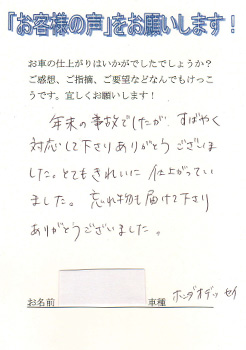 「お客様の声」をお願いします！
お車の仕上がりはいかがでしたでしょうか？
ご感想、ご指摘、ご要望などなんでもけっこ
うです。宜しくお願いします！
年末の事故でしたが、すばやく
対応して下さりありがとうございま
した。とてもきれいに仕上がってい
ました。忘れ物も届けて下さり
ありがとうございました。
お名前 車種 ホンダオデッセイ